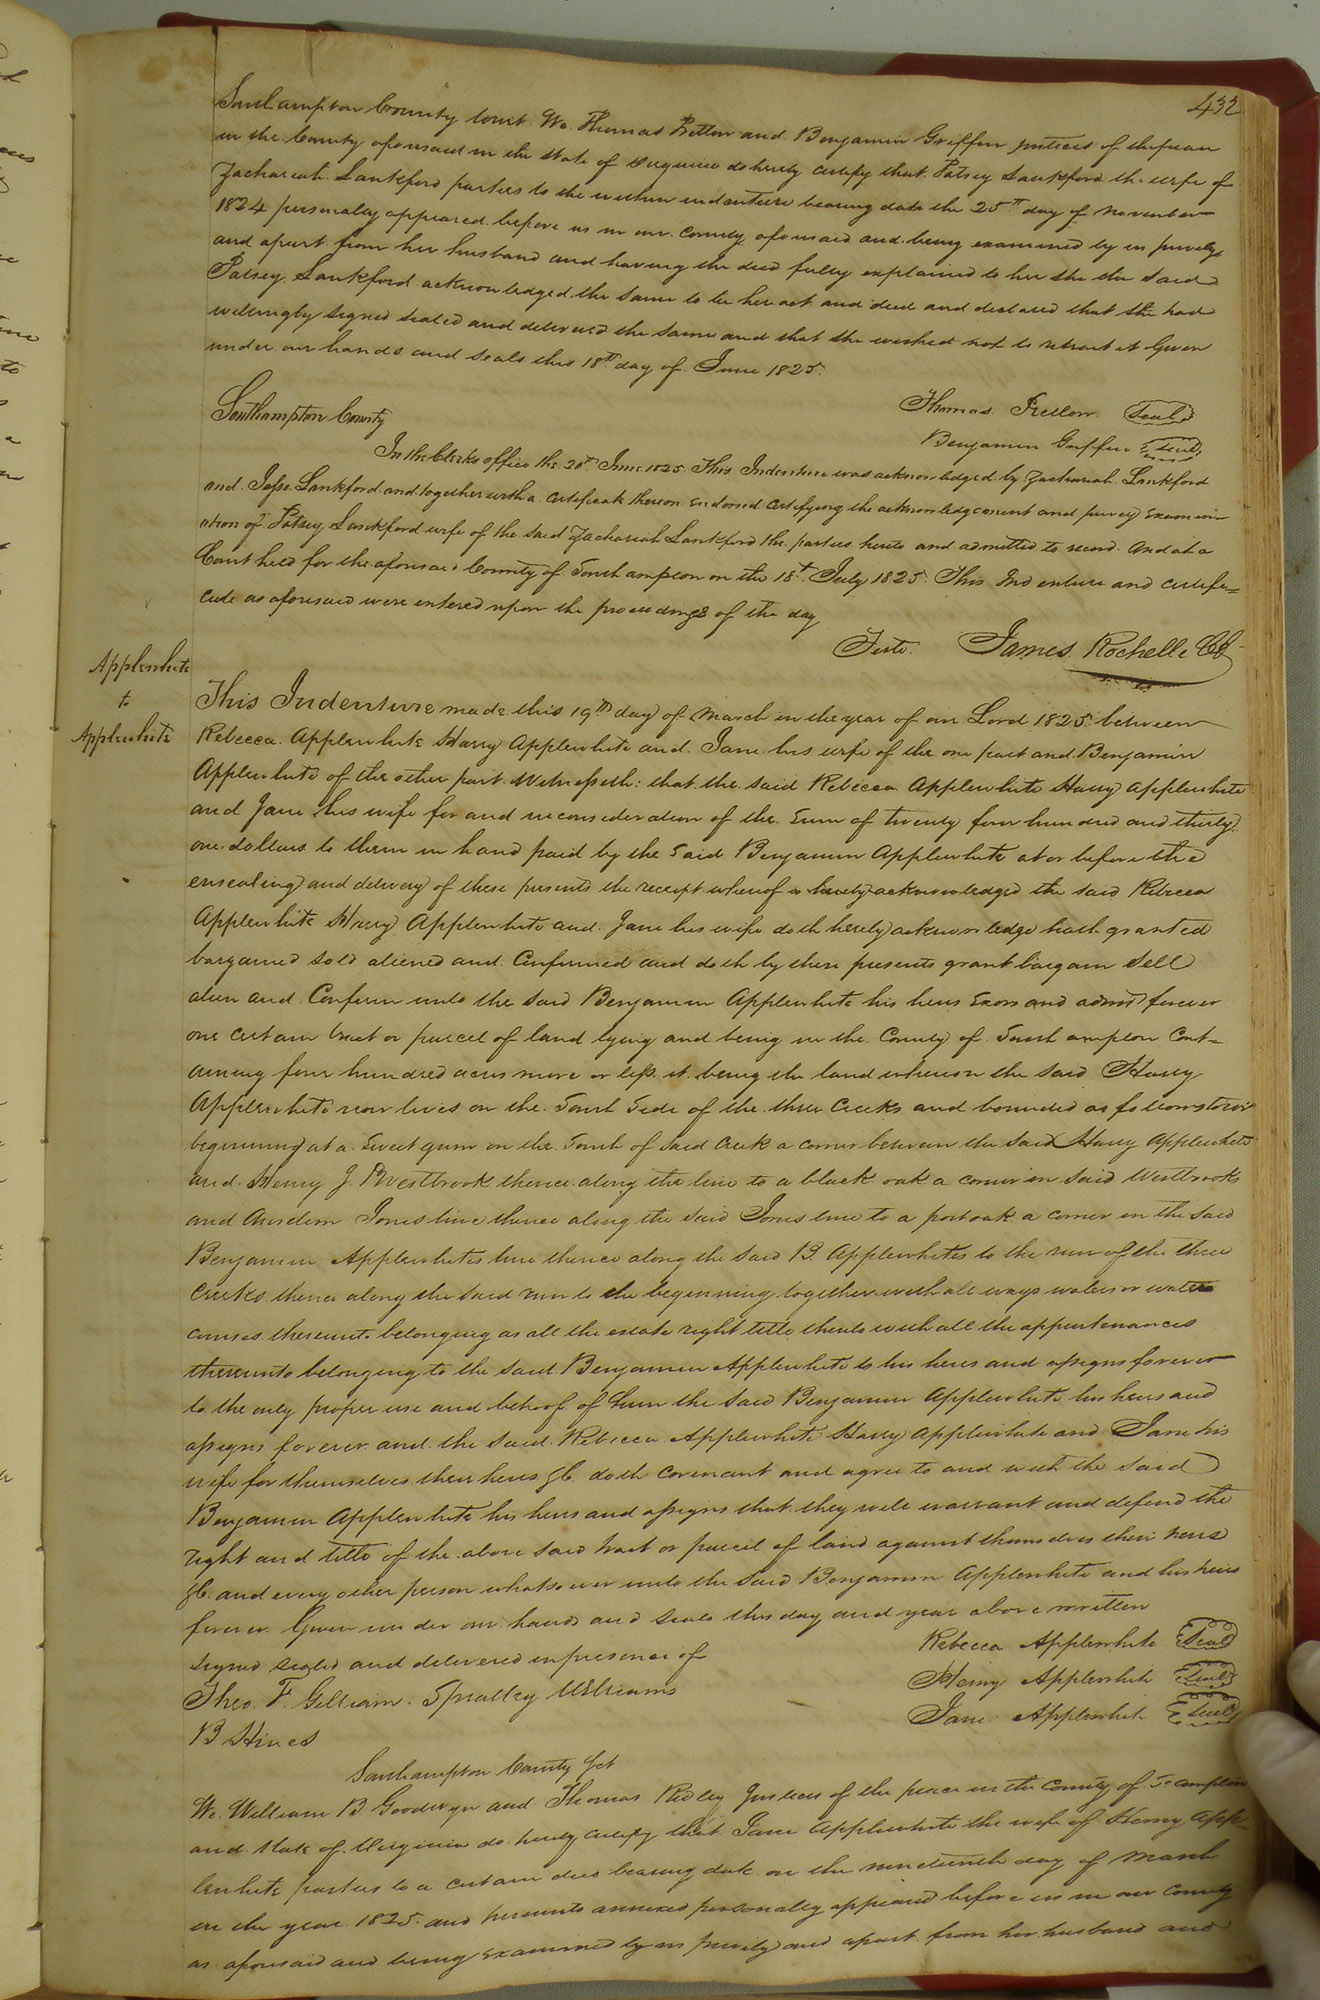 432
Southampton County Court We Thomas Pretlow and Benjamin Griffin justices of the peace
in the County aforesaid in the State of Virginia do hereby certify that Patsey Lankford the wife of
Zachariah Lankford parties to the within indenture bearing date the 25th day of November
1824 personally appeared before us in our County aforesaid and being examined by us privily
and apart from her husband and having the deed fully explained to her she the said
Patsey Lankford acknowledged the same to be her act and deed and declared that she had
willingly signed sealed and delivered the same and that she wished not to retract it Given
under our hands and seals this 18th day of June 1825
Thomas Pretlow Seal
Southampton County
Benjamin Griffin Seal
In the Clerks office the 20th June 1825 This Indenture was acknowledged by Zachariah Lankford
and Jesse Lankford and together with a certificate thereon Endorsed certifying the acknowledgement and privy Examin
ation of Patsey Lankford wife of the said Zachariah Lankford the parties hereto and admitted to record And at a
Court held for the aforesaid County of Southampton on the 18th July 1825 This Indenture and certifi=
cate as aforesaid were entered upon the proceedings of the day
Teste. James Rochelle CC
Applewhite
to
Applewhite
This Indenture made this 19th day of March in the year of our Lord 1825 between
Rebecca Applewhite Harry Applewhite and Jane his wife of the one part and Benjamin
Applewhite of the other part Witnesseth: that the said Rebecca Applewhite Harry Applewhite
and Jane his wife for and in consideration of the Sum of twenty four hundred and thirty
one dollars to them in hand paid by the Said Benjamin Applewhite at or before the
ensealing and delivery of these presents the receipt whereof is hereby acknowledged the said Rebecca
Applewhite Harry Applewhite and Jane his wife doth hereby acknowledge hath granted
bargained sold aliened and Confirmed and doth by these presents grant bargain Sell
alien and Confirm unto the said Benjamin Applewhite his heirs Exors and admrs forever
one certain tract or parcel of land lying and being in the County of Southampton Cont=
aining four hundred acres more or less it being the land whereon the said Harry
Applewhite now lives on the South Side of the three Creeks and bounded as follows towit
beginning at a Sweet gum on the South of said Creek a corner between the said Harry Applewhite
and Henry J. Westbrook thence along the line to a black oak a corner in said Westbrooks
and Ansdem Jones line thence along the said Jones line to a post oak a corner in the said
Benjamin Applewhites line thence along the said B. Applewhites to the run of the three
Creeks thence along the said run to the beginning together with all ways waters or water
courses thereunto belonging as all the estate right title thereto with all the appurtenances
thereunto belonging to the said Benjamin Applewhite to his heirs and assigns forever
to the only proper use and behoof of him the said Benjamin Applewhite his heirs and
assigns forever and the said Rebecca Applewhite Harry Applewhite and Jane his
wife for themselves their heirs &c doth covenant and agree to and with the said
Benjamin Applewhite his heirs and assigns that they will warrant and defend the
right and title of the above said tract or parcel of land against themselves their heirs
&c. and every other person whatsoever unto the said Benjamin Applewhite and his heirs
forever Given under our hands and seals this day and year above written
signed sealed and delivered in presence of Rebecca Applewhite Seal
Theo. F. Gilliam. Spratley Williams Henry Applewhite Seal
B Hines Jane Applewhite Seal
Southampton County Sct
We William B. Goodwyn and Thomas Ridley Justices of the peace in the County of So.ampton
and State of Virginia do hereby certify that Jane Applewhite the wife of Henry App=
lewhite parties to a certain deed bearing date on the nineteenth day of March
in the year 1825 and hereunto annexed personally appeared before us in our County
as aforesaid and being Examined by us privily and apart from her husband and